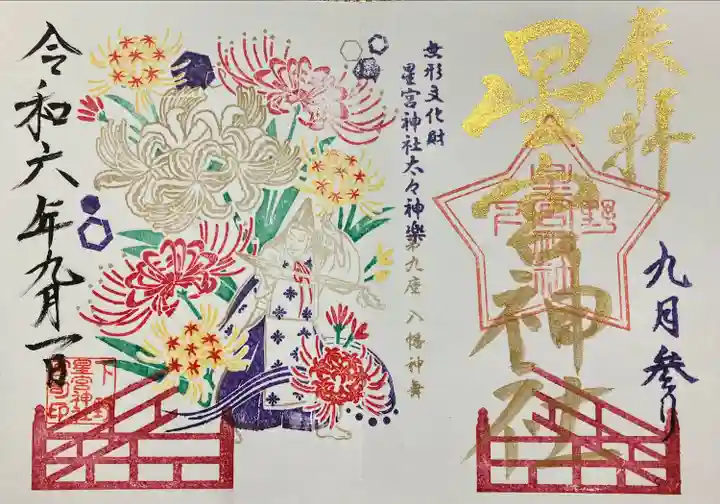 奉拝
星宮神社
下野
星宮
神社
九月参り
無形文化財
星宮神社太々神楽
第九座 八幡神舞
令和六年九月一日
下野
星宮神社